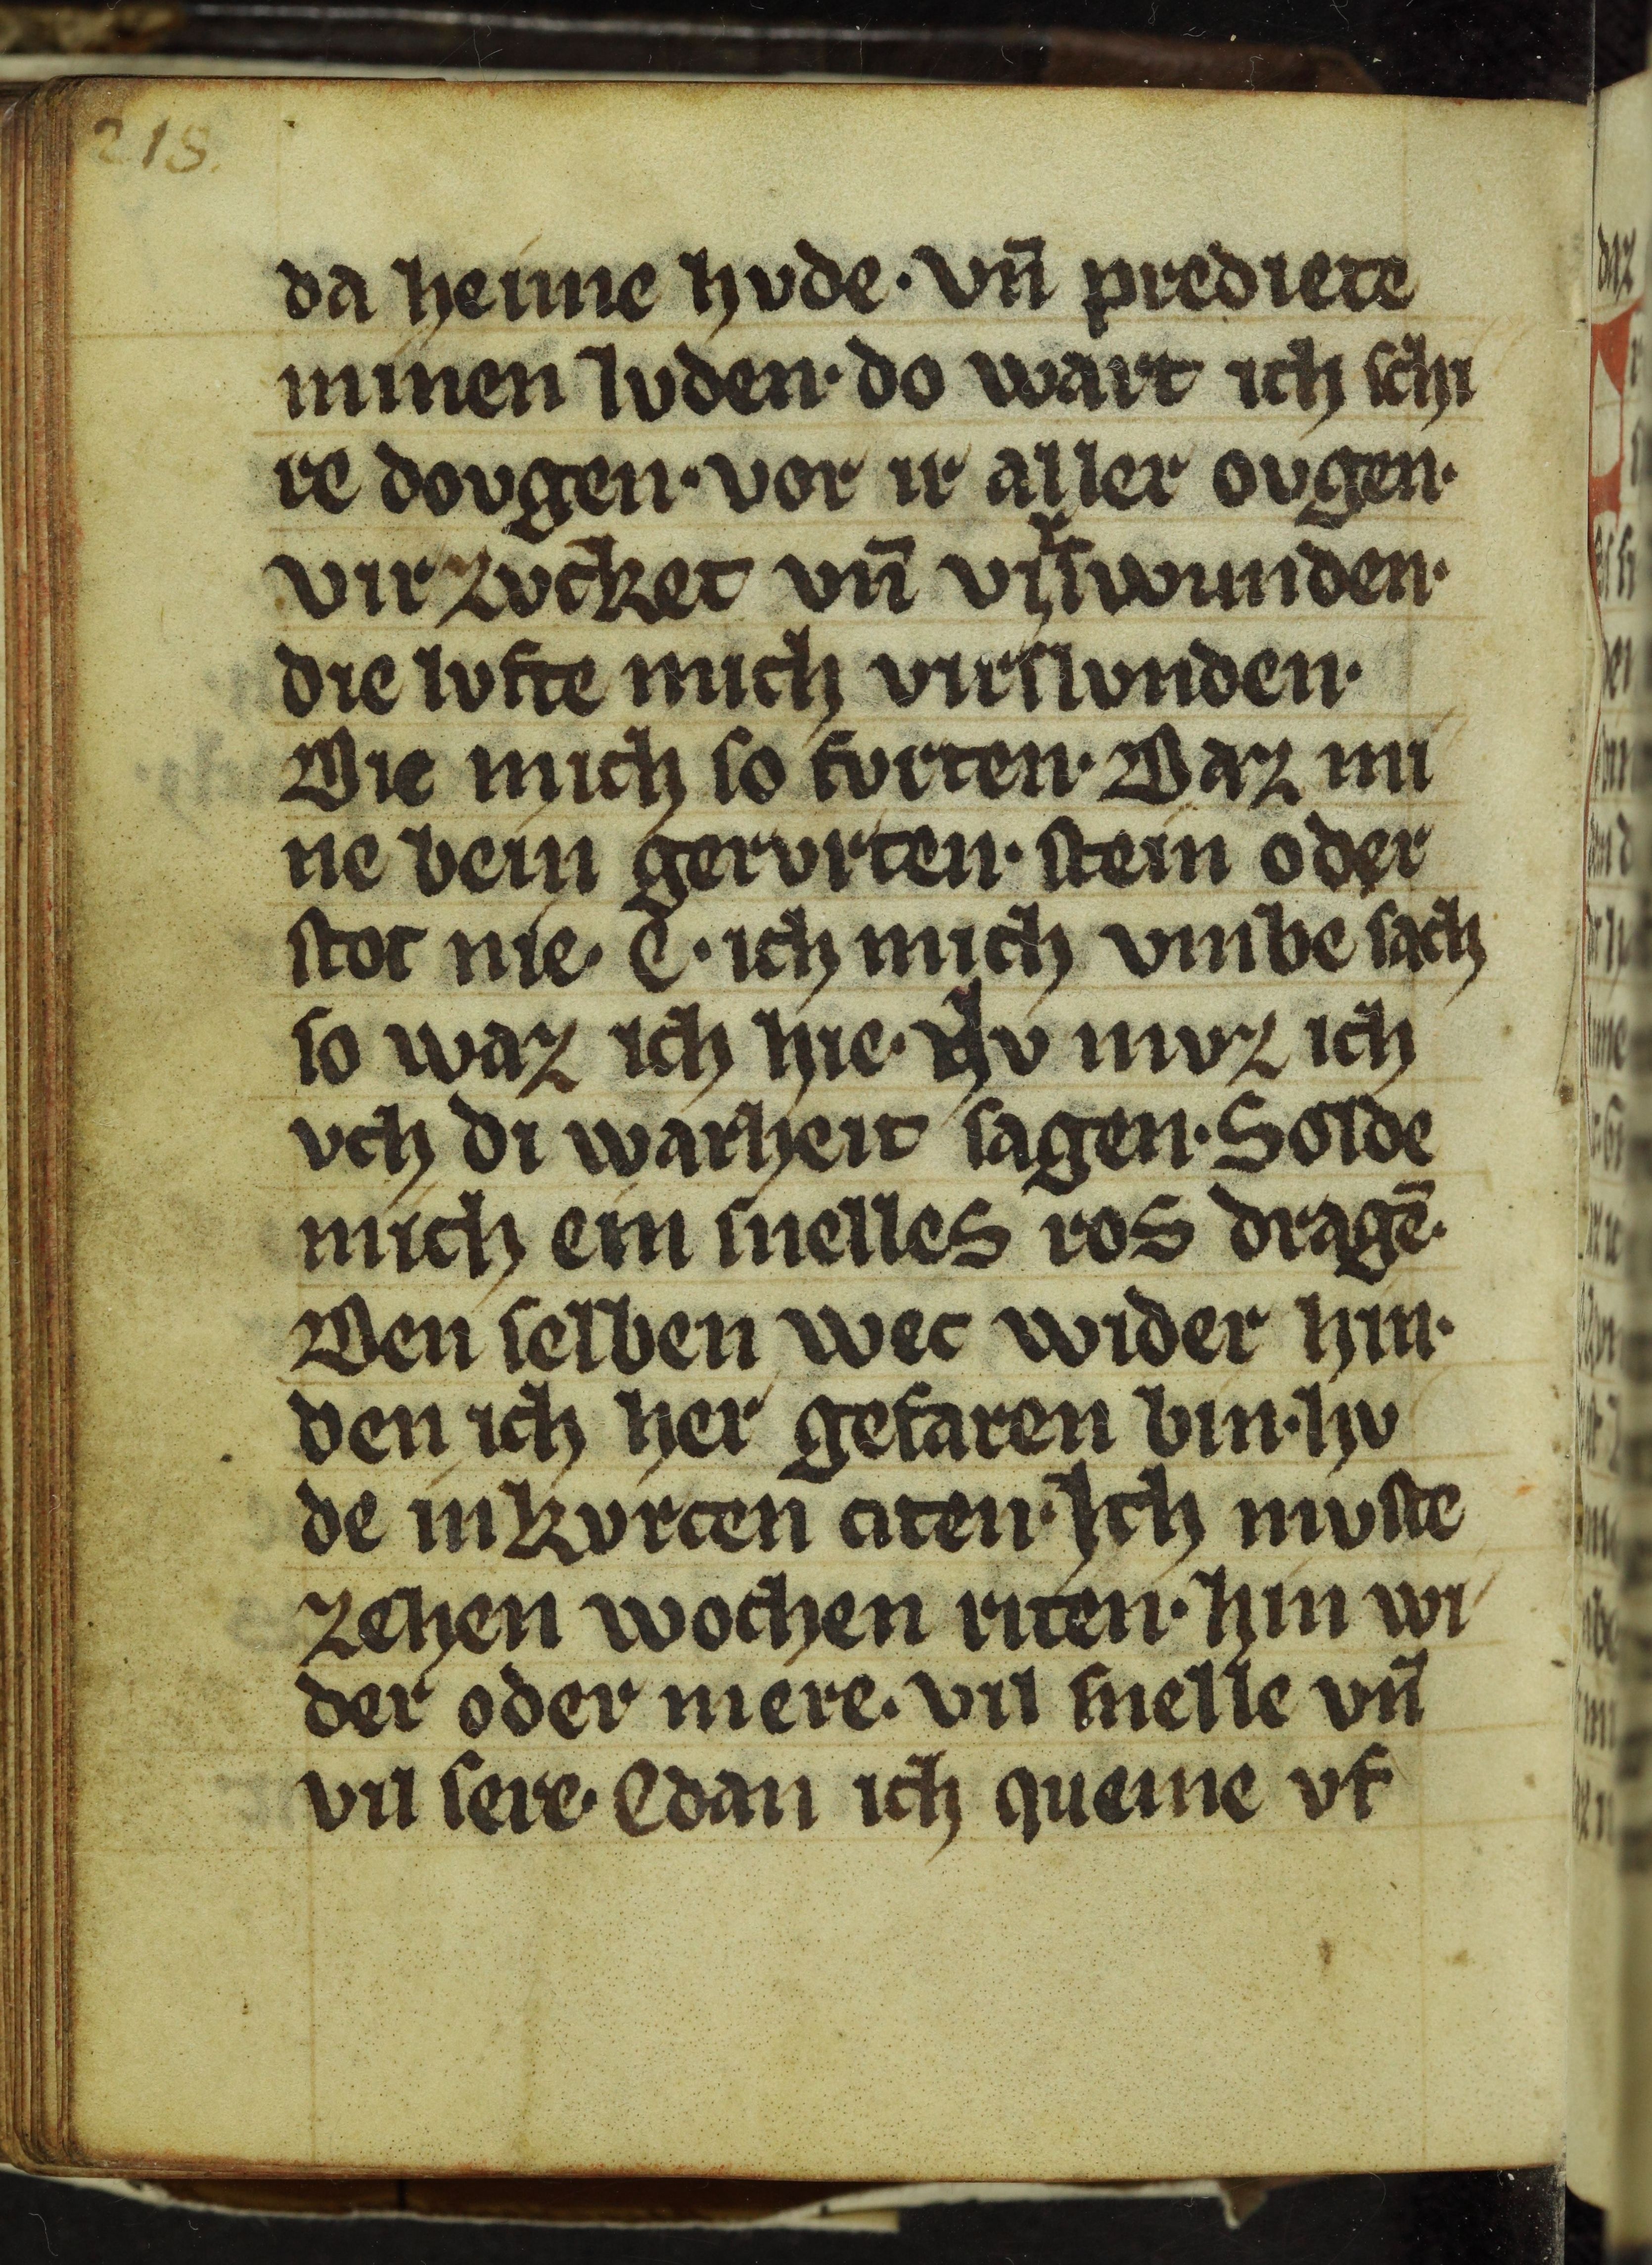 218.
da heime hvde · vn̄ prediete
minen lvden · do wart ich schi
re dovgen · vor ir aller ovgen ·
vir zvcket vn̄ virswunden ·
die lvfte mich virslvnden ·
Die mich so fvrten · Daz mi
ne bein gervrten · stein oder
stoc nie · E · ich mich vmbe sach
so waz ich hie · Nv mvz ich
vch di warheit sagen · Solde
mich ein snelles ros dragē ·
Den selben wec wider hin ·
den ich her gefaren bin · hv
de in kvrcen citen · Ich mvste
zehen wochen riten · hin wi
der oder mere · vil snelle vn̄
vil sere · Edan ich queme vf